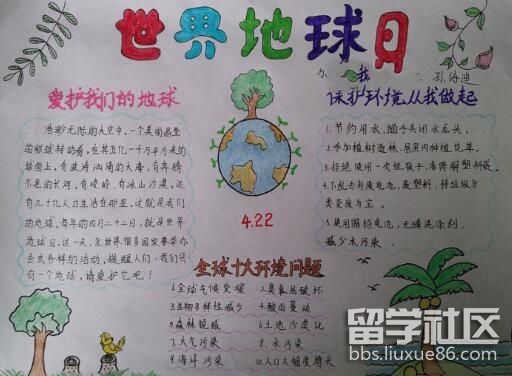 世界地球日
办: 我
爱护我们的地球
保护环境,从我做起
浩瀚无际的太空中,一个美丽晶莹
的彩球转动着,在其五亿一千万平方米的
球面上,有波涛汹涌的大海,有奔腾
不息的长河,有峻岭,有冰山沙漠,还
有几十亿人口生活在那里,这就是我们
的地球,每年的四月二十二日,就是世界
地球日,这一天,全世界很多国家要举办
各式各样的活动,提醒人们,我们只
有一个地球,请爱护它吧!
1.节约用水,随手关闭水龙头。
2.参加植树造林,居室内种植花草。
3.拒绝使用一次性筷子,
4.不乱丢弃废电池、废塑料,将垃圾分
类变废为宝。
5.使用脂肪皂水、无磷洗涤剂,
减少水污染
4.22
全球十大环境问题
1.全球气候变暖
2.臭氧层破坏
3.生物多样性减少
4.酸雨蔓延
5.森林锐减
6.土地沙漠化
7.大气污染
8.水污染
9.海洋污染
10.人口大幅度增长
留学社区
bbs.liuxue86.com